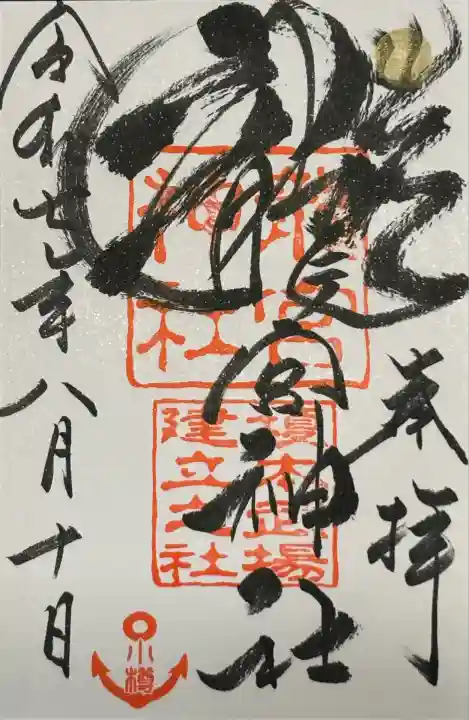 奉拝
龍宮神社
龍宮神社
榎本武揚建立之社
令和七年八月十日
小樽